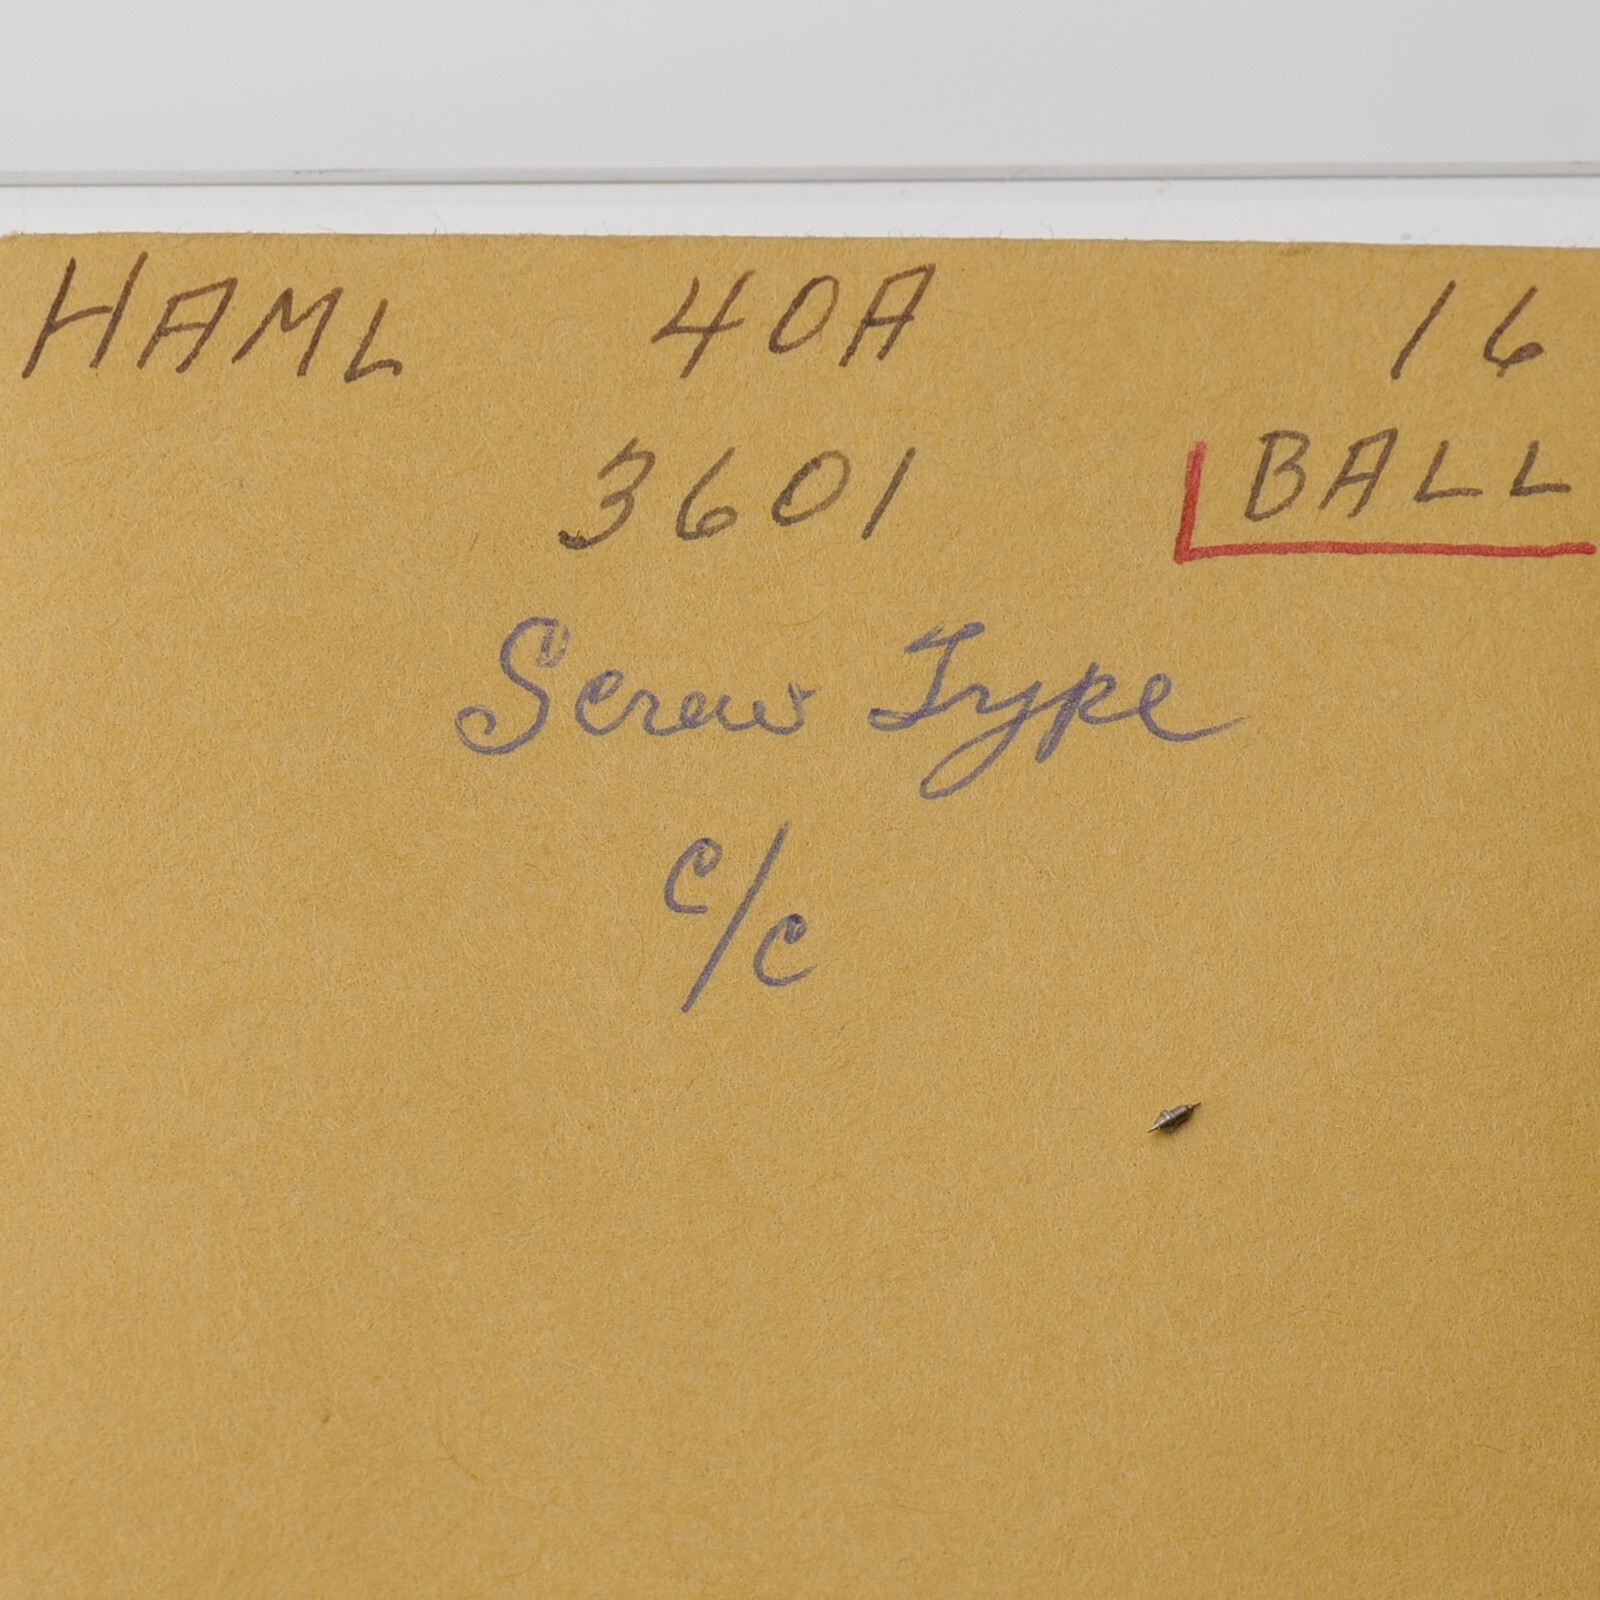 HAML 40A 16
3601 BALL
Screw Type
c/c